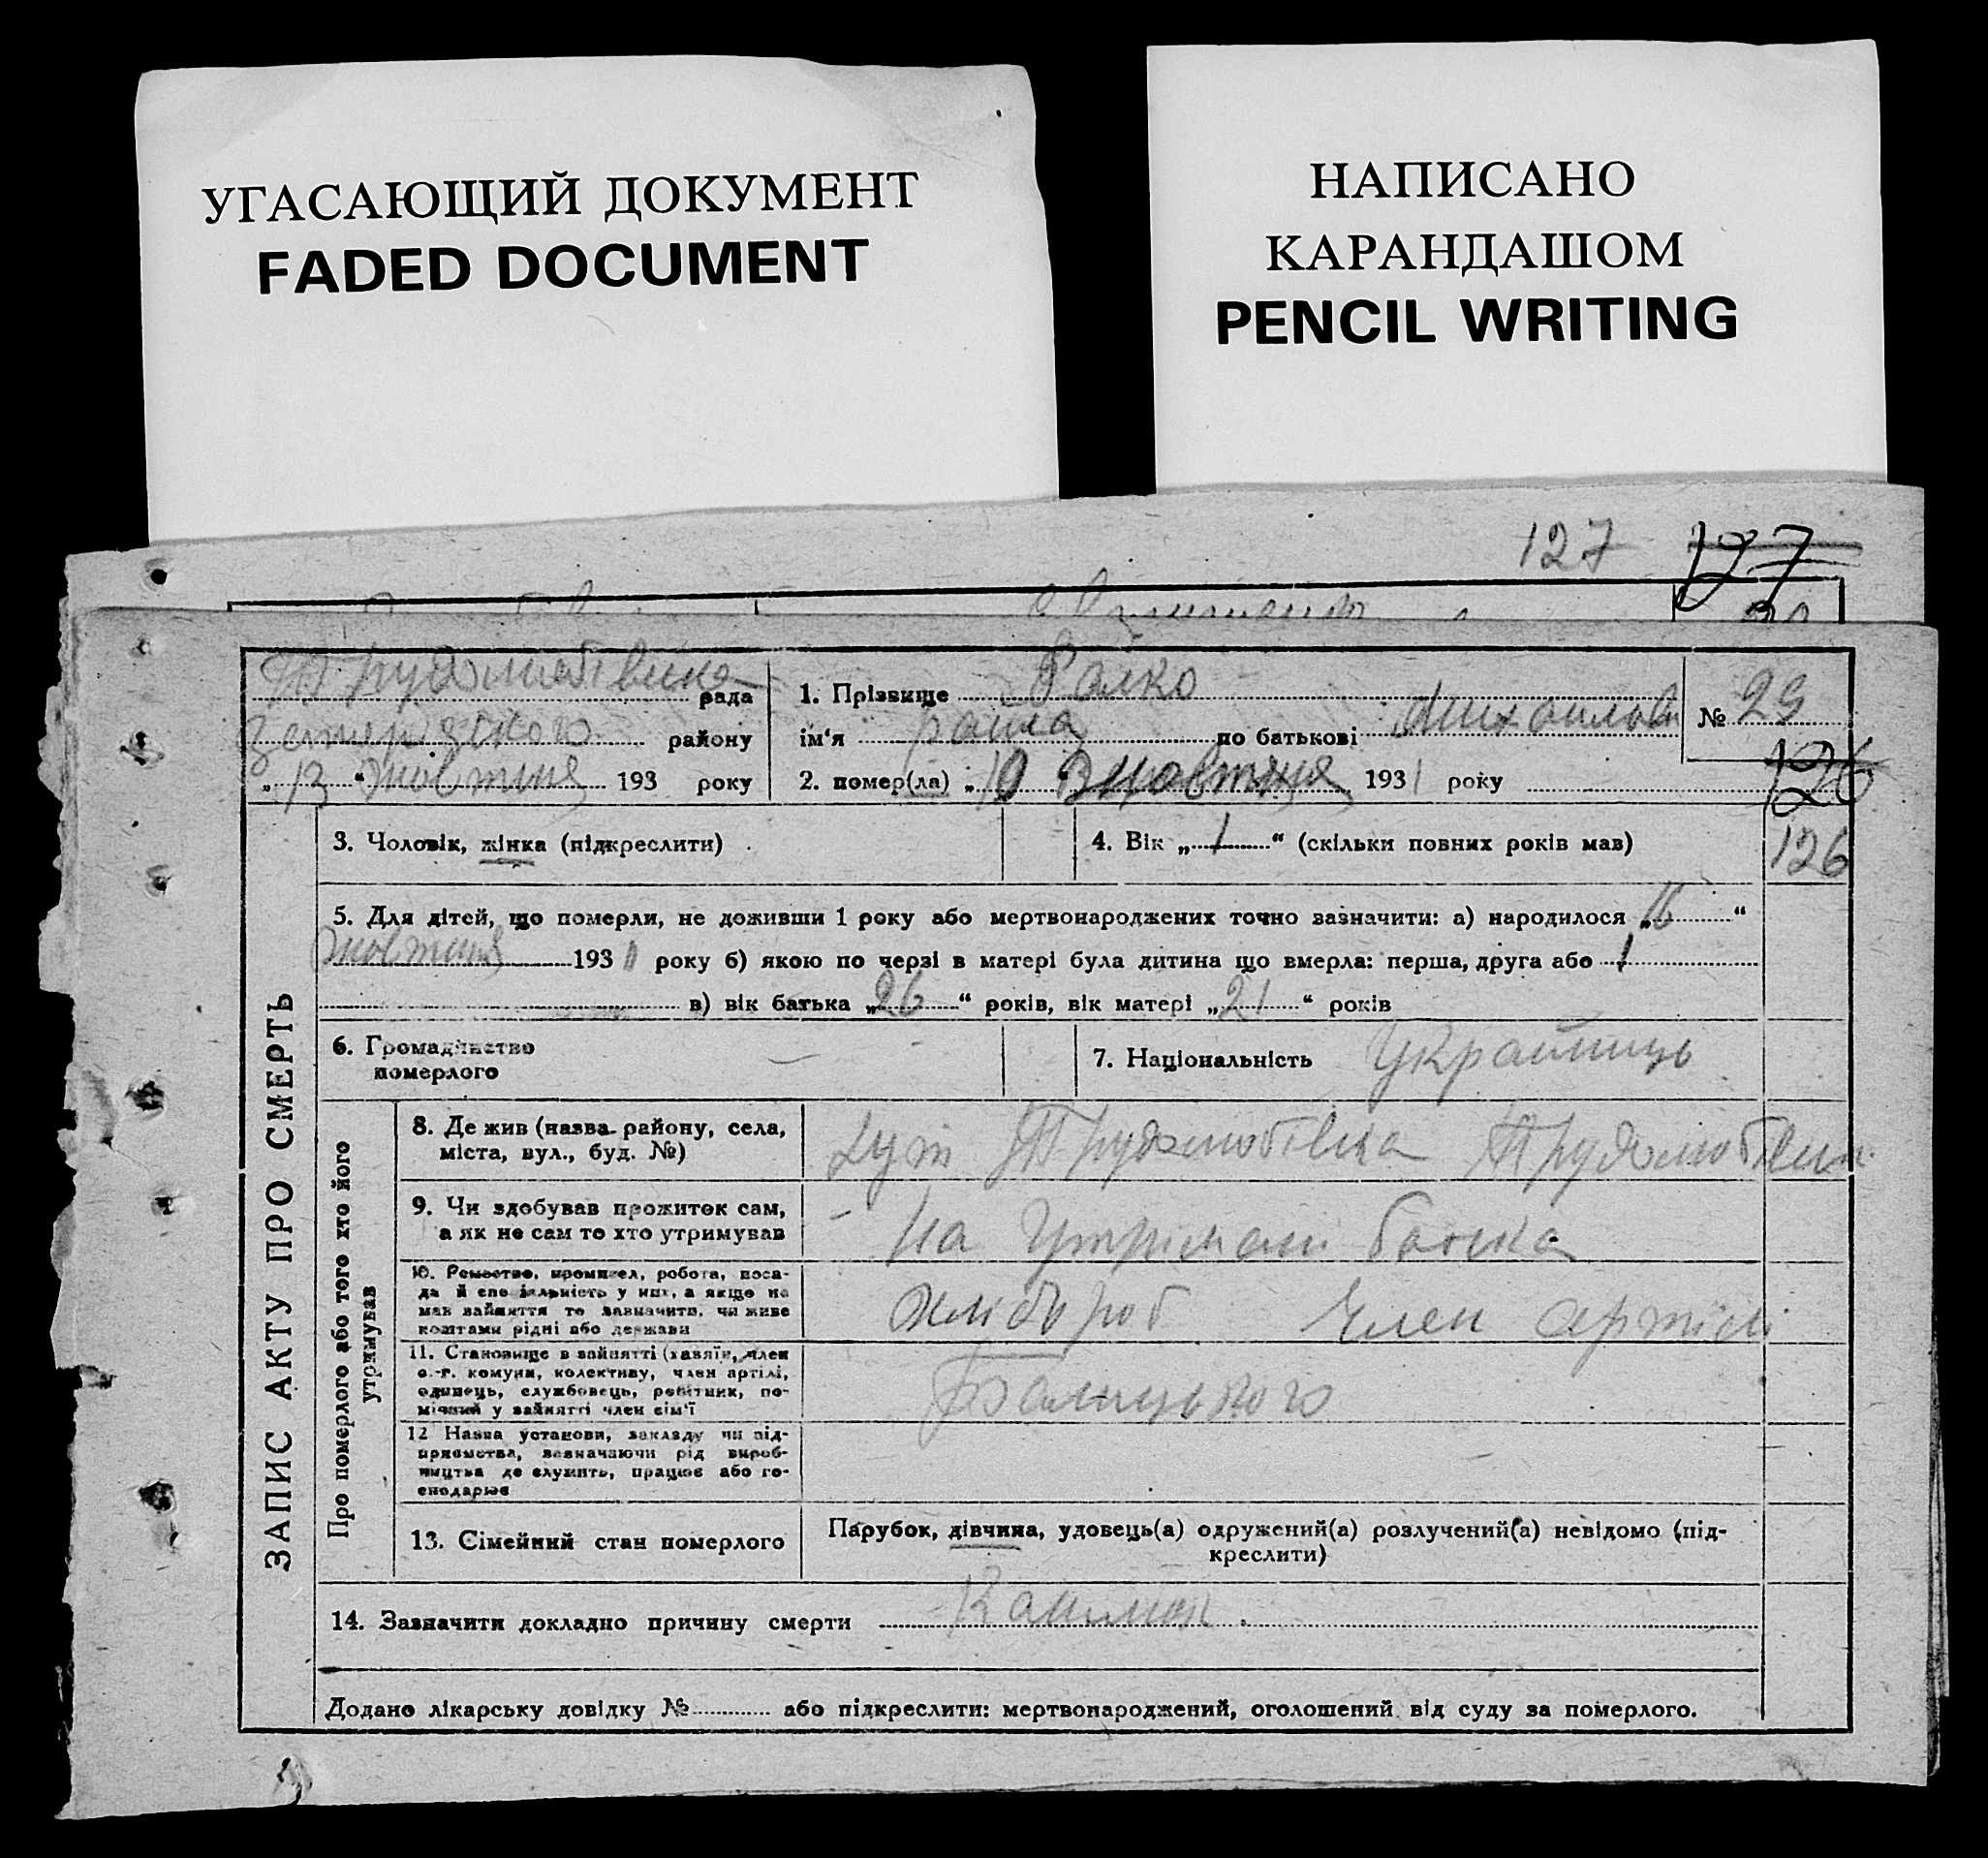 УГАСАЮЩИЙ ДОКУМЕНТ
FADED DOCUMENT
НАПИСАНО
КАРАНДАШОМ
PENCIL WRITING
127 127
рада
району
„13“ Жовтня 193 року
1. Прізвище
ім'я по батькові
№ 29
2. помер(ла) „10 Жовтня 1931 року
126
3. Чоловік, жінка (підкреслити)
4. Вік „1“ (скільки повних років мав)
126
5. Для дітей, що померли, не доживши 1 року або мертвонароджених точно зазначити: а) народилося „16“
Жовтня 193 року б) якою по черзі в матері була дитина що вмерла: перша, друга або 1
в) вік батька „26“ років, вік матері „21“ років
6. Громадянство
померлого
7. Національність Українць
ЗАПИС АКТУ ПРО СМЕРТЬ
Про померлого або того хто його
утримував
8. Де жив (назва району, села,
міста, вул., буд. №)
9. Чи здобував прожиток сам,
а як не сам то хто утримував
на утрімані батька
10. Ремество, промисел, робота, поса-
да й спеціальність у них, а якщо не
мав зайняття то зазначити, чи живе
коштами рідні або держави
Хлібороб Член артілі
11. Становище в зайнятті (хазяїн, член
с.-г. комуни, колективу, член артілі,
одинець, службовець, робітник, по-
мічний у зайнятті член сім'ї
12 Назва установи, закладу чи під-
приємства, зазначаючи рід вироб-
ництва де служить, працює або го-
сподарює
13. Сімейний стан померлого
Парубок, дівчина, удовець(а) одружений(а) розлучений(а) невідомо (під-
креслити)
14. Зазначити докладно причину смерти
Додано лікарську довідку № або підкреслити: мертвонароджений, оголошений від суду за померлого.